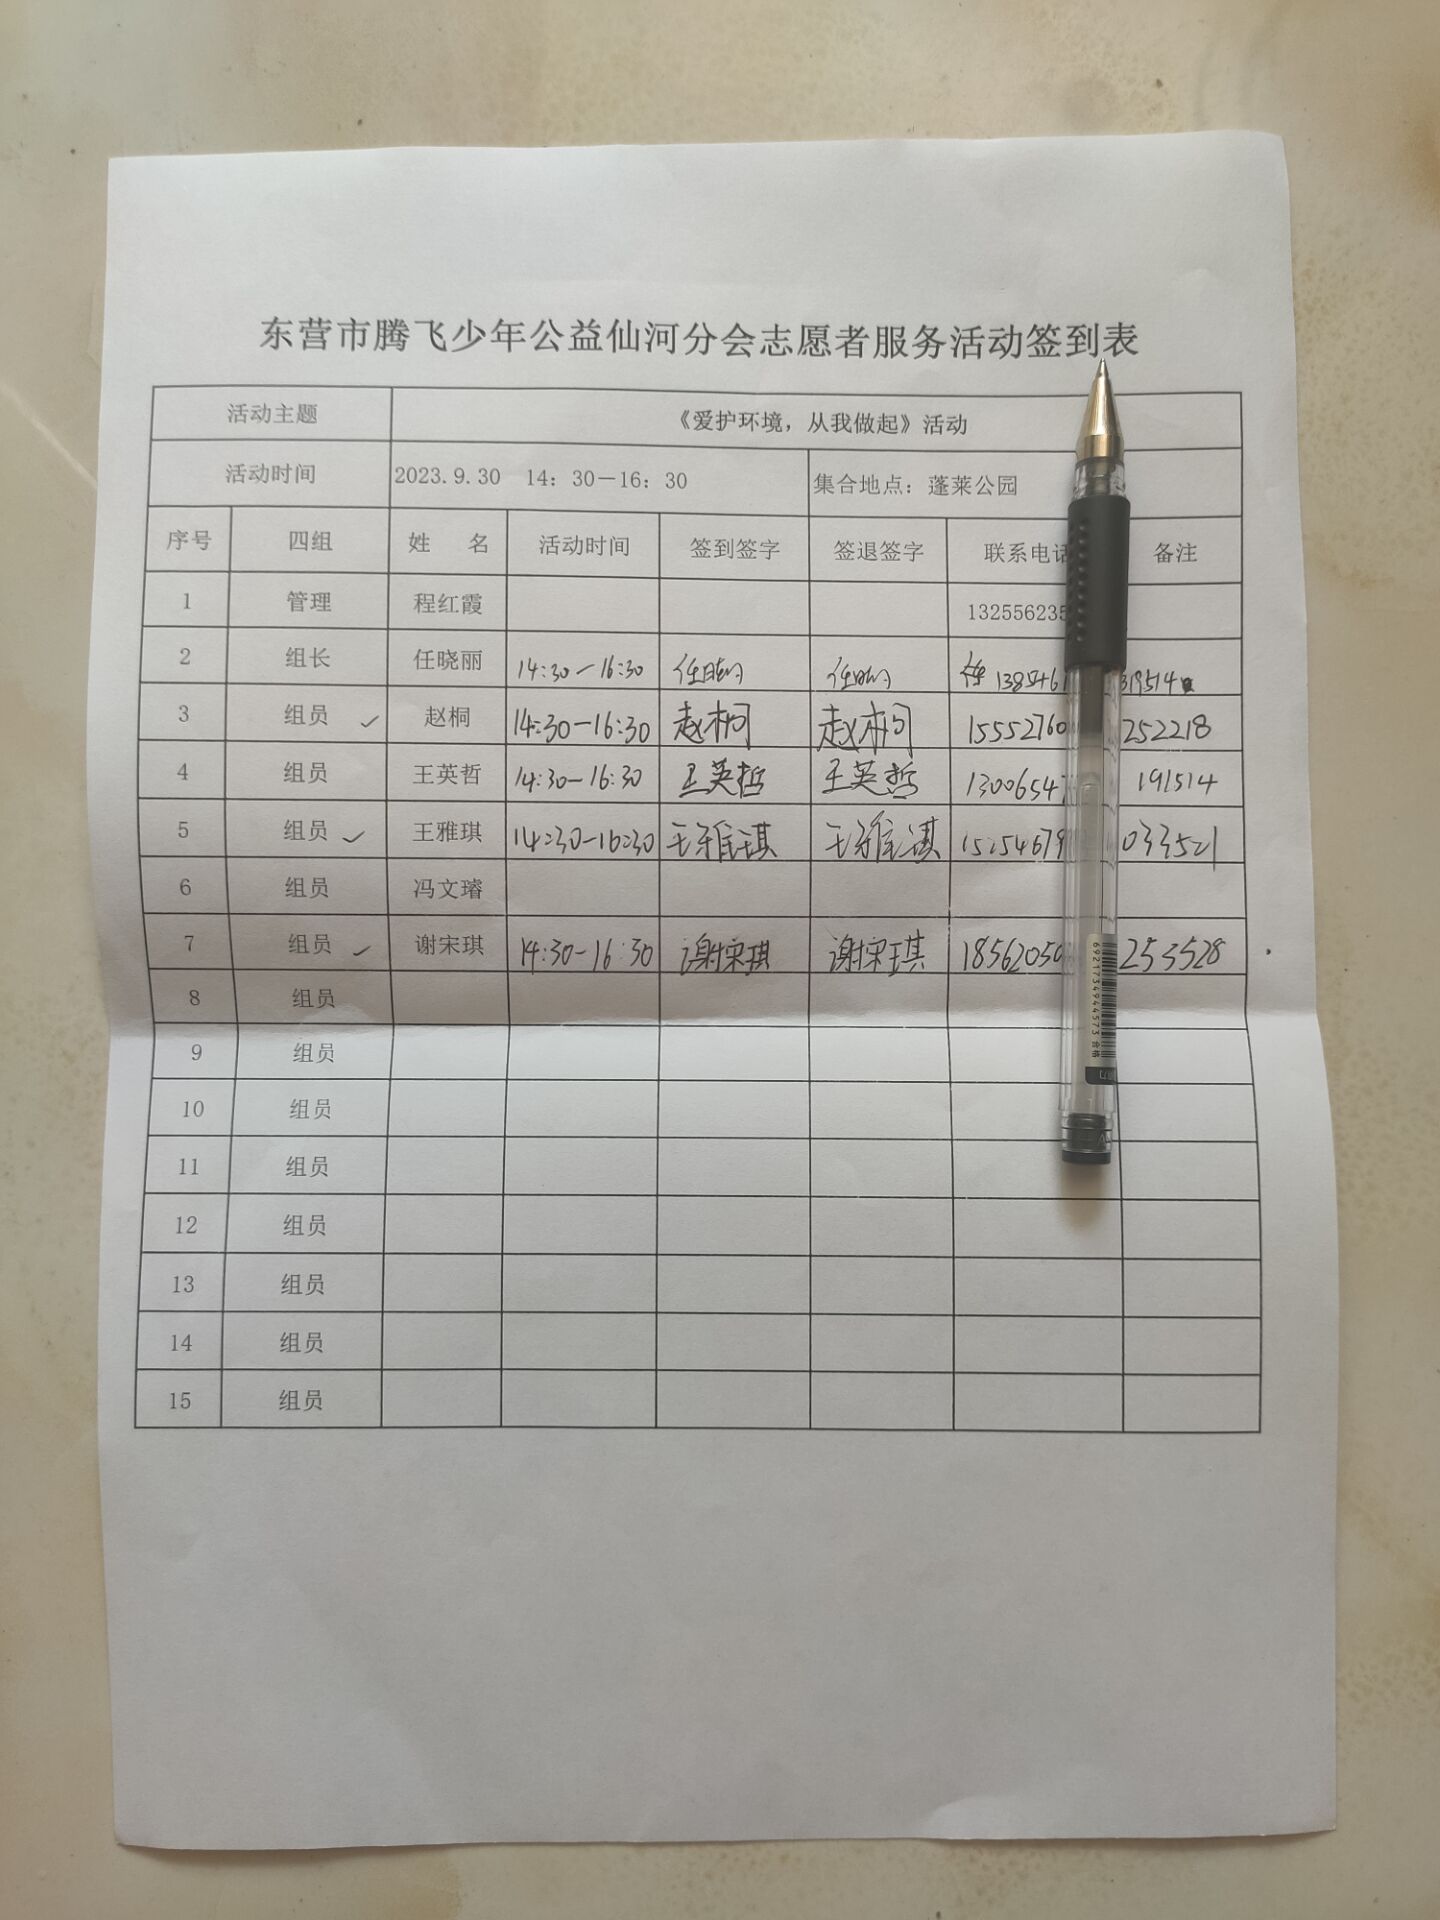 东营市腾飞少年公益仙河分会志愿者服务活动签到表
活动主题 《爱护环境，从我做起》活动
活动时间 2023.9.30 14：30－16：30 集合地点：蓬莱公园
序号 四组 姓 名 活动时间 签到签字 签退签字 联系电话 备注
1 管理 程红霞 13255623
2 组长 任晓丽 14:30-16:30
3 组员 ✓ 赵桐 14:30-16:30 赵桐 赵桐 15552760 252218
4 组员 王英哲 14:30-16:30 王英哲 王英哲 13006547 191514
5 组员 ✓ 王雅琪 14:30-16:30 王雅琪 王雅琪 15254679 033521
6 组员 冯文璿
7 组员 ✓ 谢宋琪 14:30-16:30 谢宋琪 谢宋琪 18562050 253528
8 组员
9 组员
10 组员
11 组员
12 组员
13 组员
14 组员
15 组员
6921734944573 合格